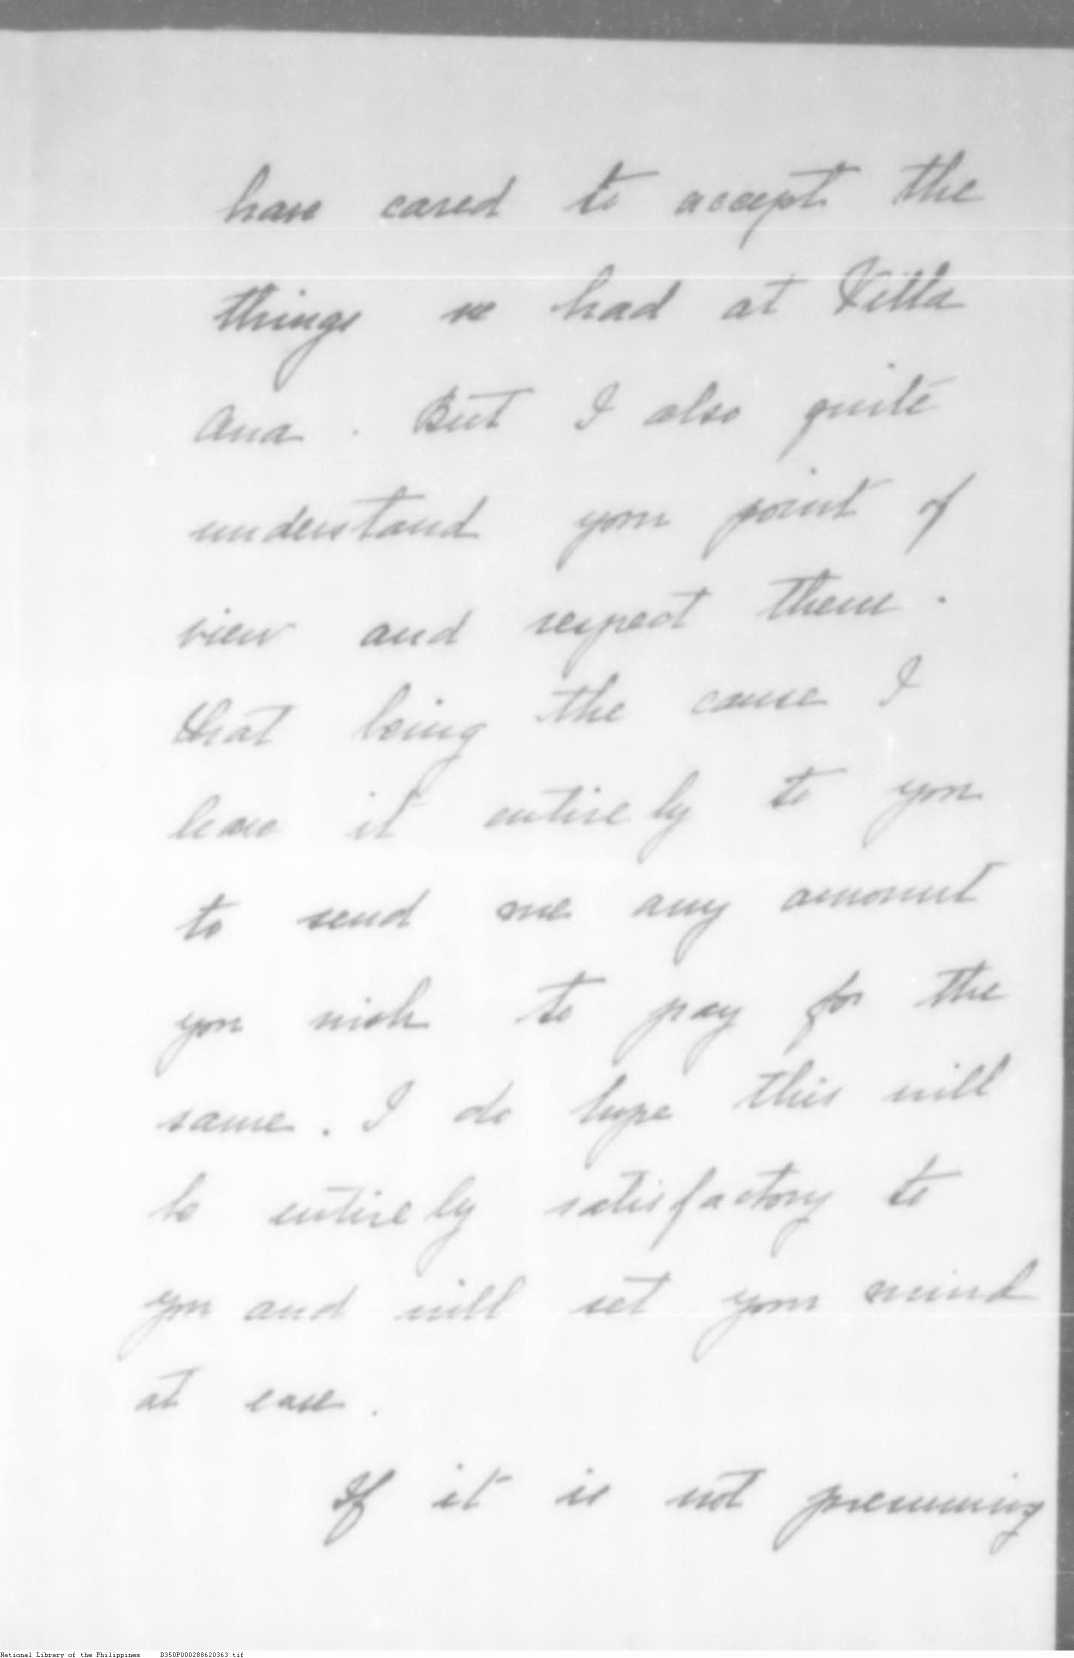 have cared to accept the
things we had at Villa
Ana. But I also quite
understand your point of
view and respect them.
That being the cause I
leave it entirely to you
to send me any amount
you wish to pay for the
same. I do hope this will
be entirely satisfactory to
you and will set your mind
at ease.
If it is not presuming
National Library of the Philippines D350P000288620363.tif